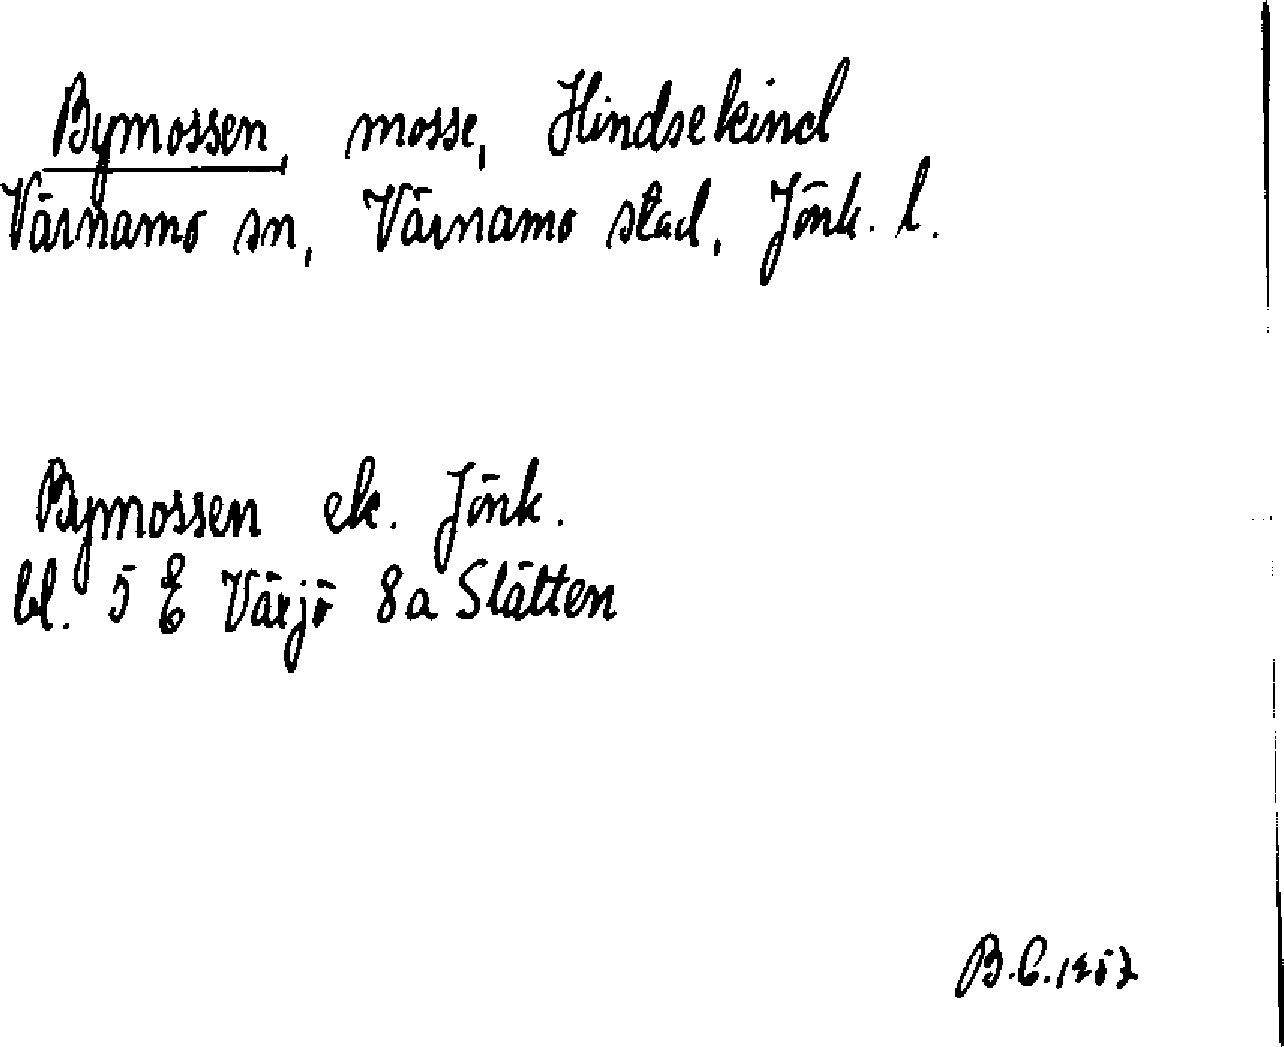 Bymossen, mosse, Hindsekind
Värnamo sn, Värnamo stad, Jönk. l.
Bymossen ek. Jönk.
bl. 5 E Växjö 8a Slätten
B.C.